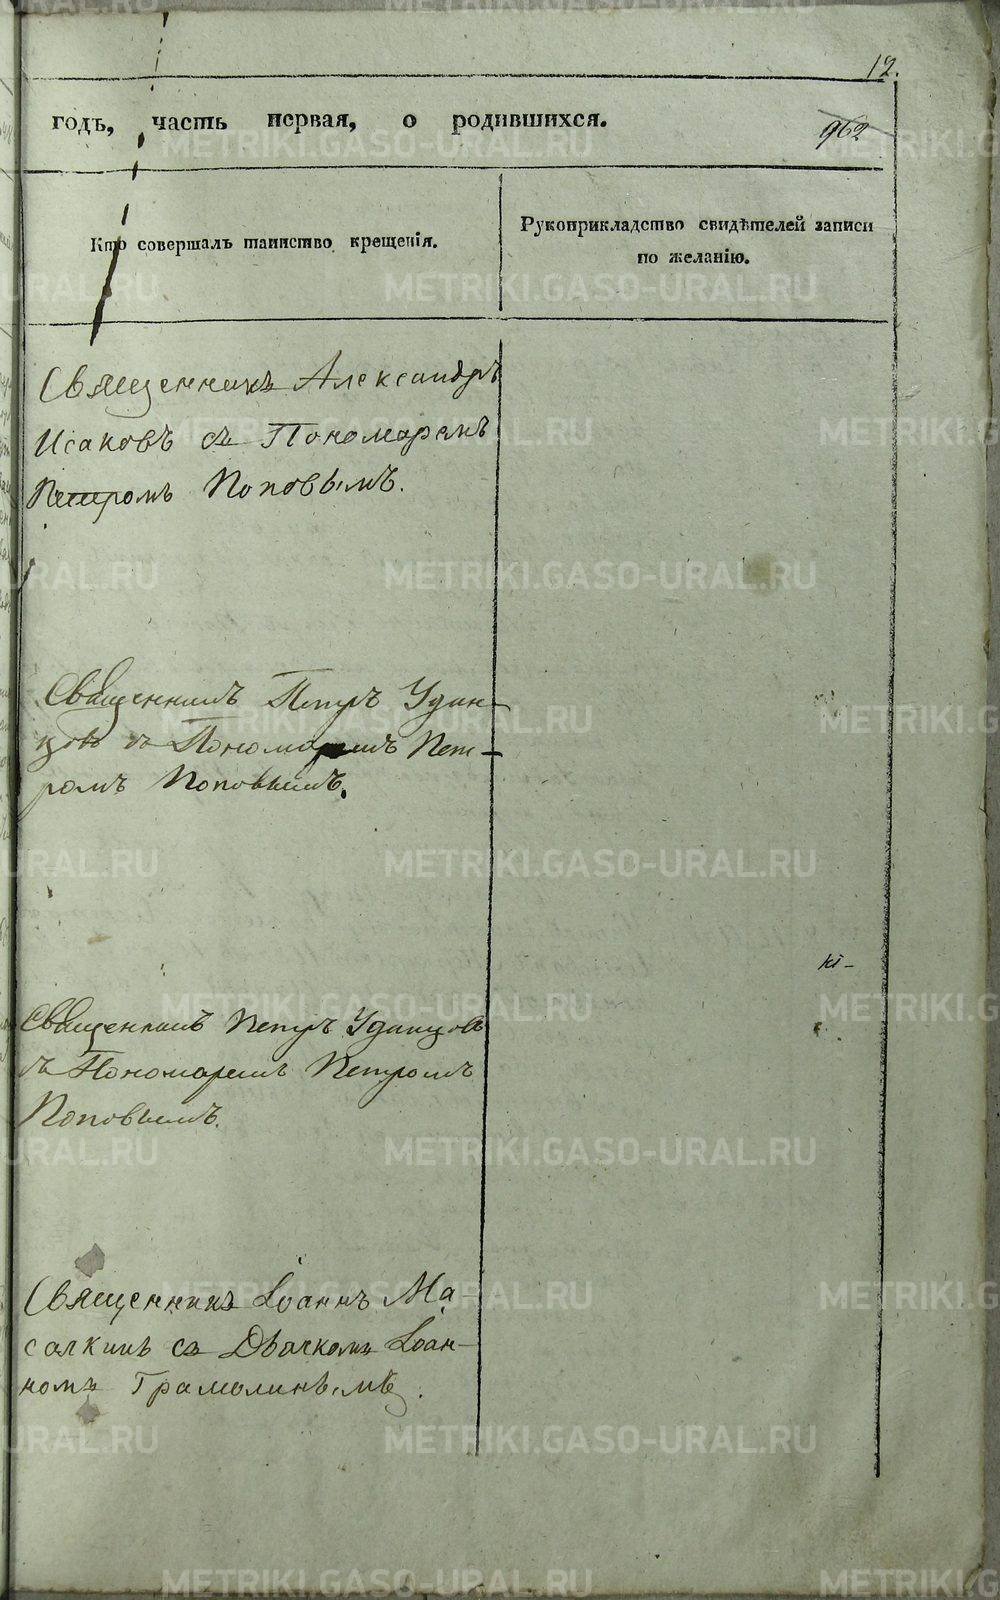 12.
годъ, часть первая, о родившихся.
962
Кто совершалъ таинство крещенія.
Рукоприкладство свидѣтелей записи
по желанію.
Священникъ Александръ
Исаковъ съ Пономаремъ
Петромъ Поповымъ.
Священникъ Петръ Удин-
цовъ съ Пономаремъ Пет-
ромъ Поповымъ.
Священникъ Петръ Удинцовъ
съ Пономаремъ Петромъ
Поповымъ.
Священникъ Іоаннъ Ма-
салкинъ съ Дьячкомъ Іоан-
номъ Грамолинымъ.
METRIKI.GASO-URAL.RU